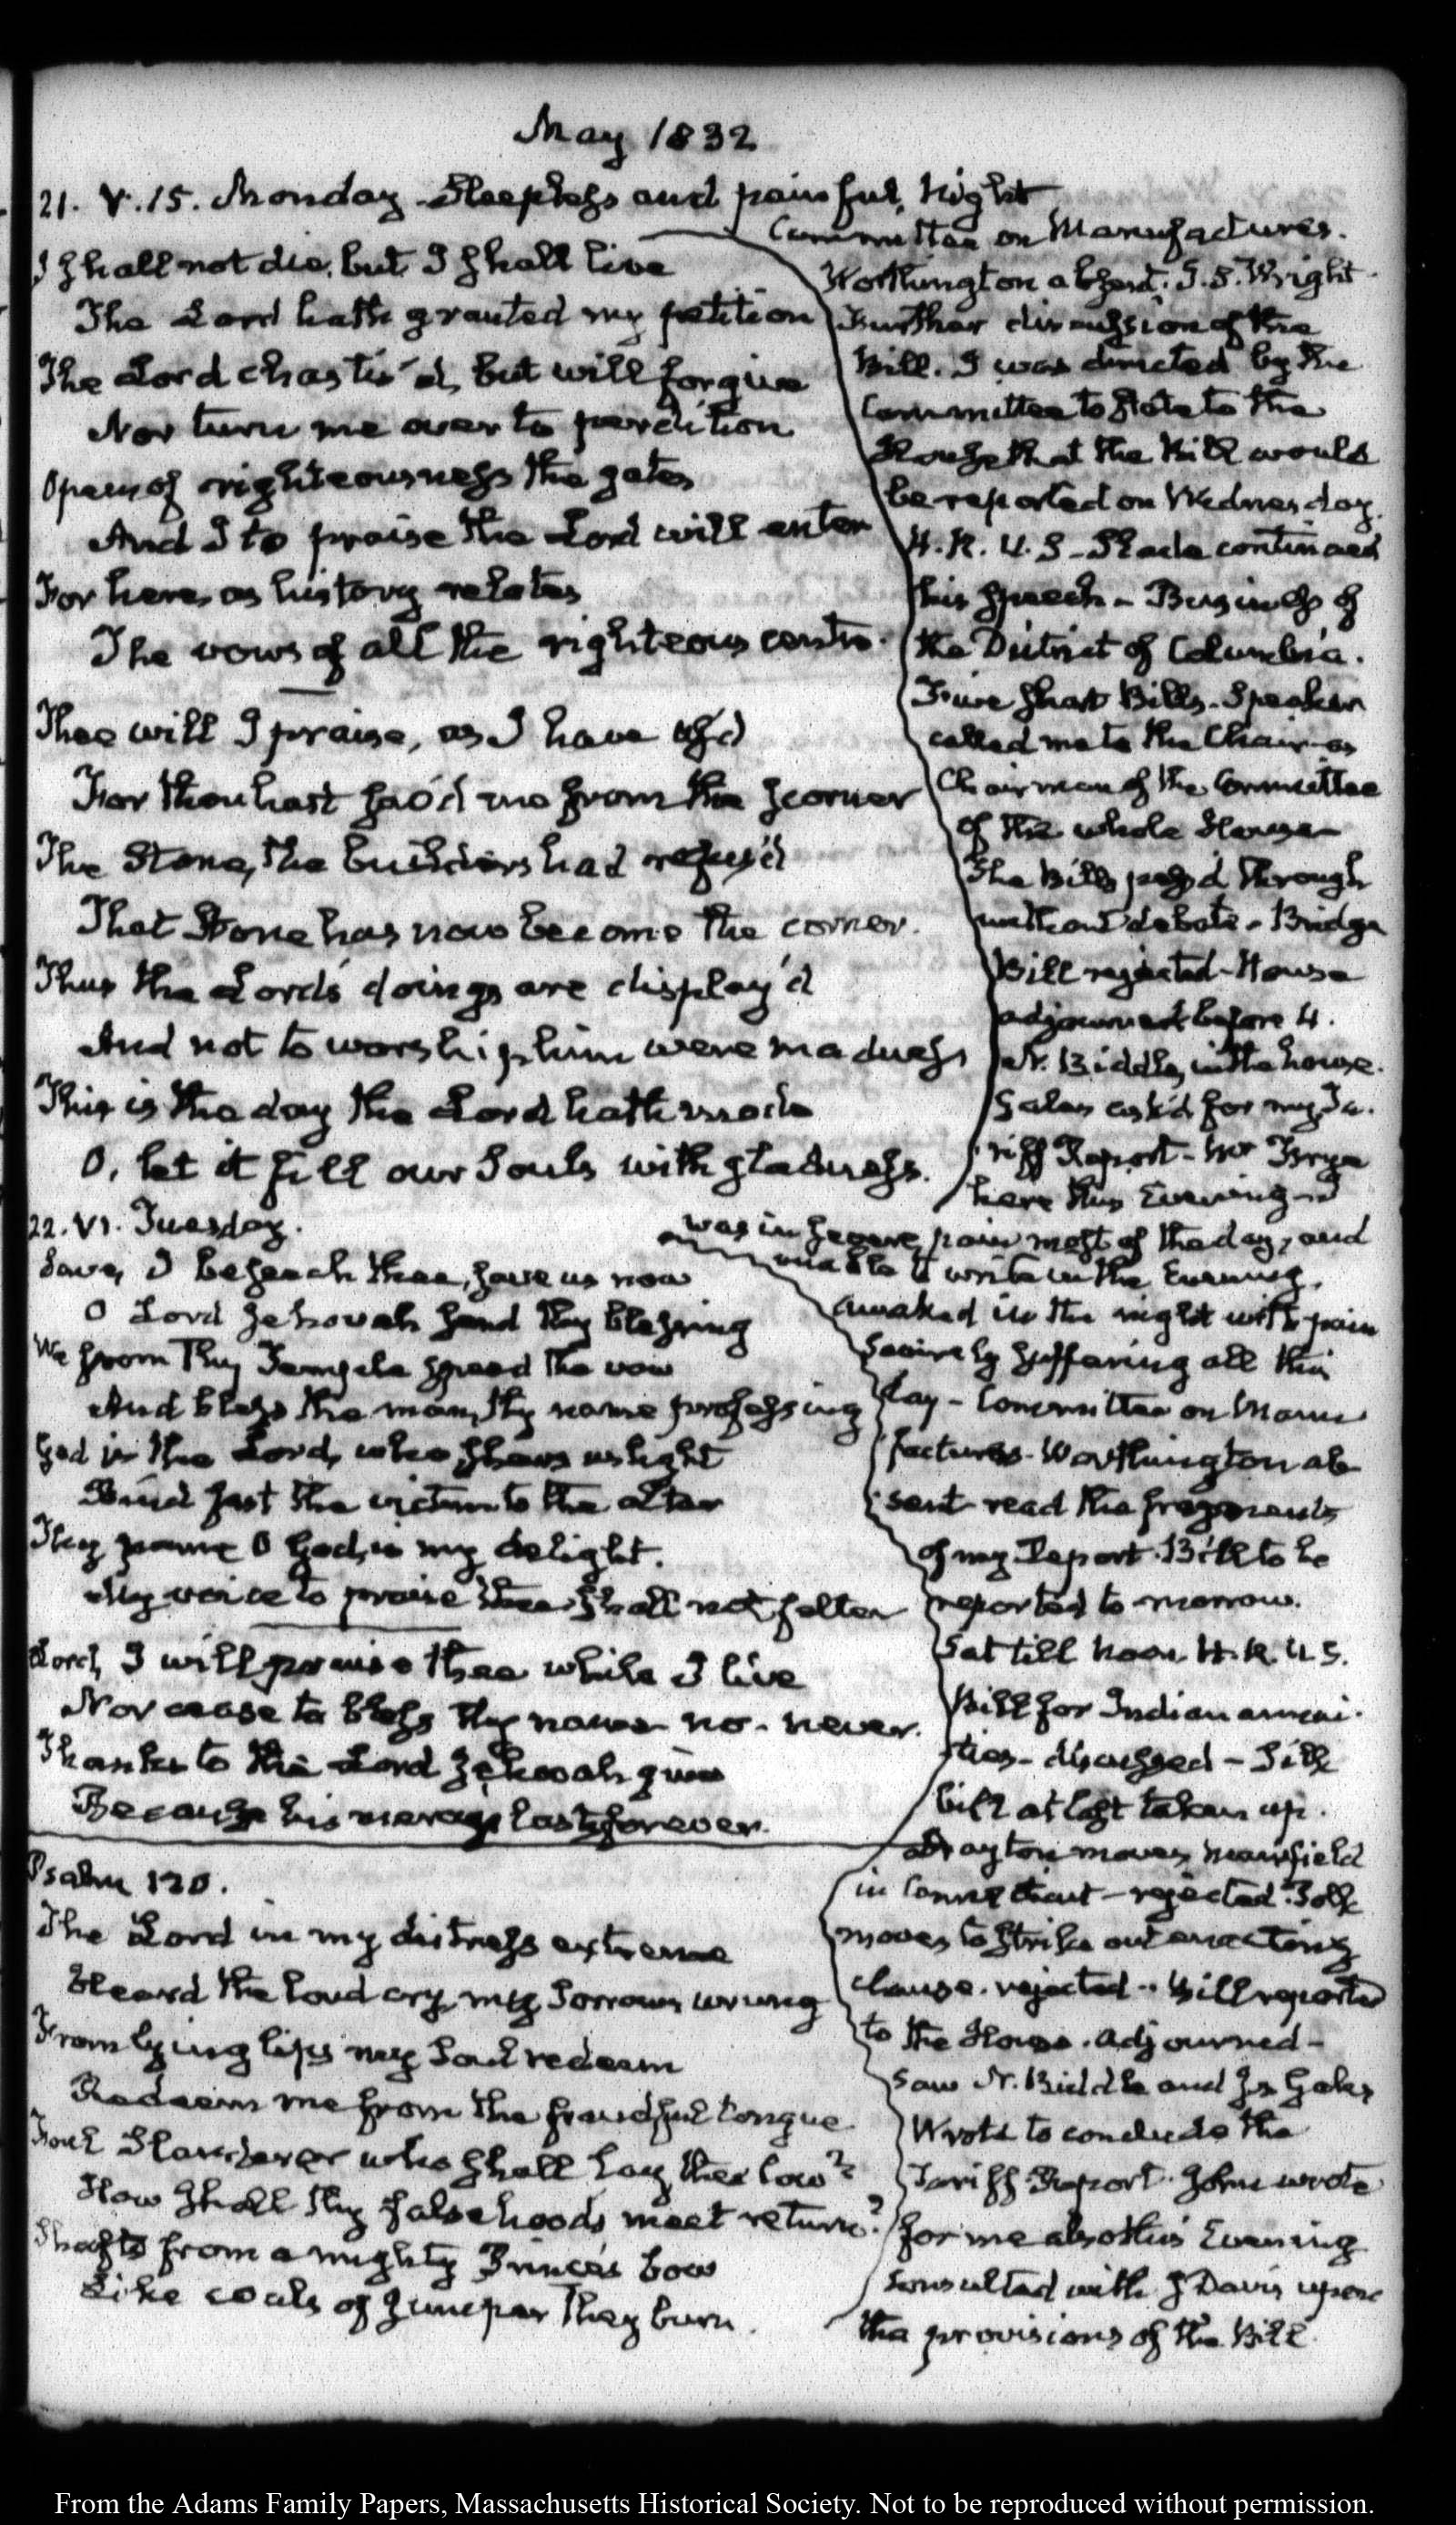 May 1832
21. V. 15. Monday. Sleepless and painful night
Committee on Manufactures.
Worthington absent; J. S. Wright
Further discussion of the
Bill. I was directed by the
Committee to state to the
House that the Bill would
be reported on Wednesday.
H. R. U. S - Slade continued
his speech - Business of
the District of Columbia.
Five short Bills. Speaker
called me to the Chair as
Chairman of the Committee
of the whole House
The Bills pass'd through
without debate - Bridge
Bill rejected - House
adjourned before 4.
N. Biddle, in the house.
Gales ask'd for my Ta-
riff Report - Mr Frye
here this Evening - I
was in severe pain most of the day, and
unable to write in the Evening.
I shall not die, but I shall live
The Lord hath granted my petition
The Lord chastis'd, but will forgive
Nor turn me over to perdition
Open of righteousness the gates
And I to praise the Lord will enter
For here, as history relates
The vows of all the righteous centre.
Thee will I praise, as I have us'd
For thou hast sav'd me from the scorner
The Stone, the builders had refus'd
That Stone has now become the corner.
Thus the Lord's doings are display'd
And not to worship him were madness
This is the day the Lord hath made
O, let it fill our Souls with gladness.
22. VI. Tuesday.
Awaked in the night with pain
Severely suffering all this
day - Committee on Manu
factures - Worthington ab-
sent - read the fragments
of my Report. Bill to be
reported to-morrow.
Sat till Noon. H. R. U. S.
Bill for Indian annui-
ties - discussed - Silk
bill at last taken up.
Drayton moves Mansfield
in Connecticut - rejected. Polk
moves to strike out enacting
clause. rejected - Bill reported
to the House. Adjourned -
Saw N. Biddle and Js Gales
Wrote to conclude the
Tariff Report. John wrote
for me also this Evening
Consulted with J Davis upon
the provisions of the Bill.
Save, I beseech thee, save us now
O Lord Jehovah send thy blessing
We from Thy Temple spread the vow
And bless the man, thy name professing
God is the Lord, who shews us light
Bind fast the victim to the altar
Thy name O God, is my delight.
My voice to praise thee shall not falter
Lord, I will praise thee while I live
Nor cease to bless thy name - no - never.
Thanks to the Lord Jehovah give
Because his mercies last forever.
Psalm 120.
The Lord in my distress extreme
Heard the loud cry, my Sorrows wrung
From lying lips my Soul redeem
Redeem me from the fraudful tongue
Foul Slanderer who shall lay thee low?
How shall thy falsehoods meet return?
Shafts from a mighty Prince's bow
Like coals of Juniper they burn.
From the Adams Family Papers, Massachusetts Historical Society. Not to be reproduced without permission.